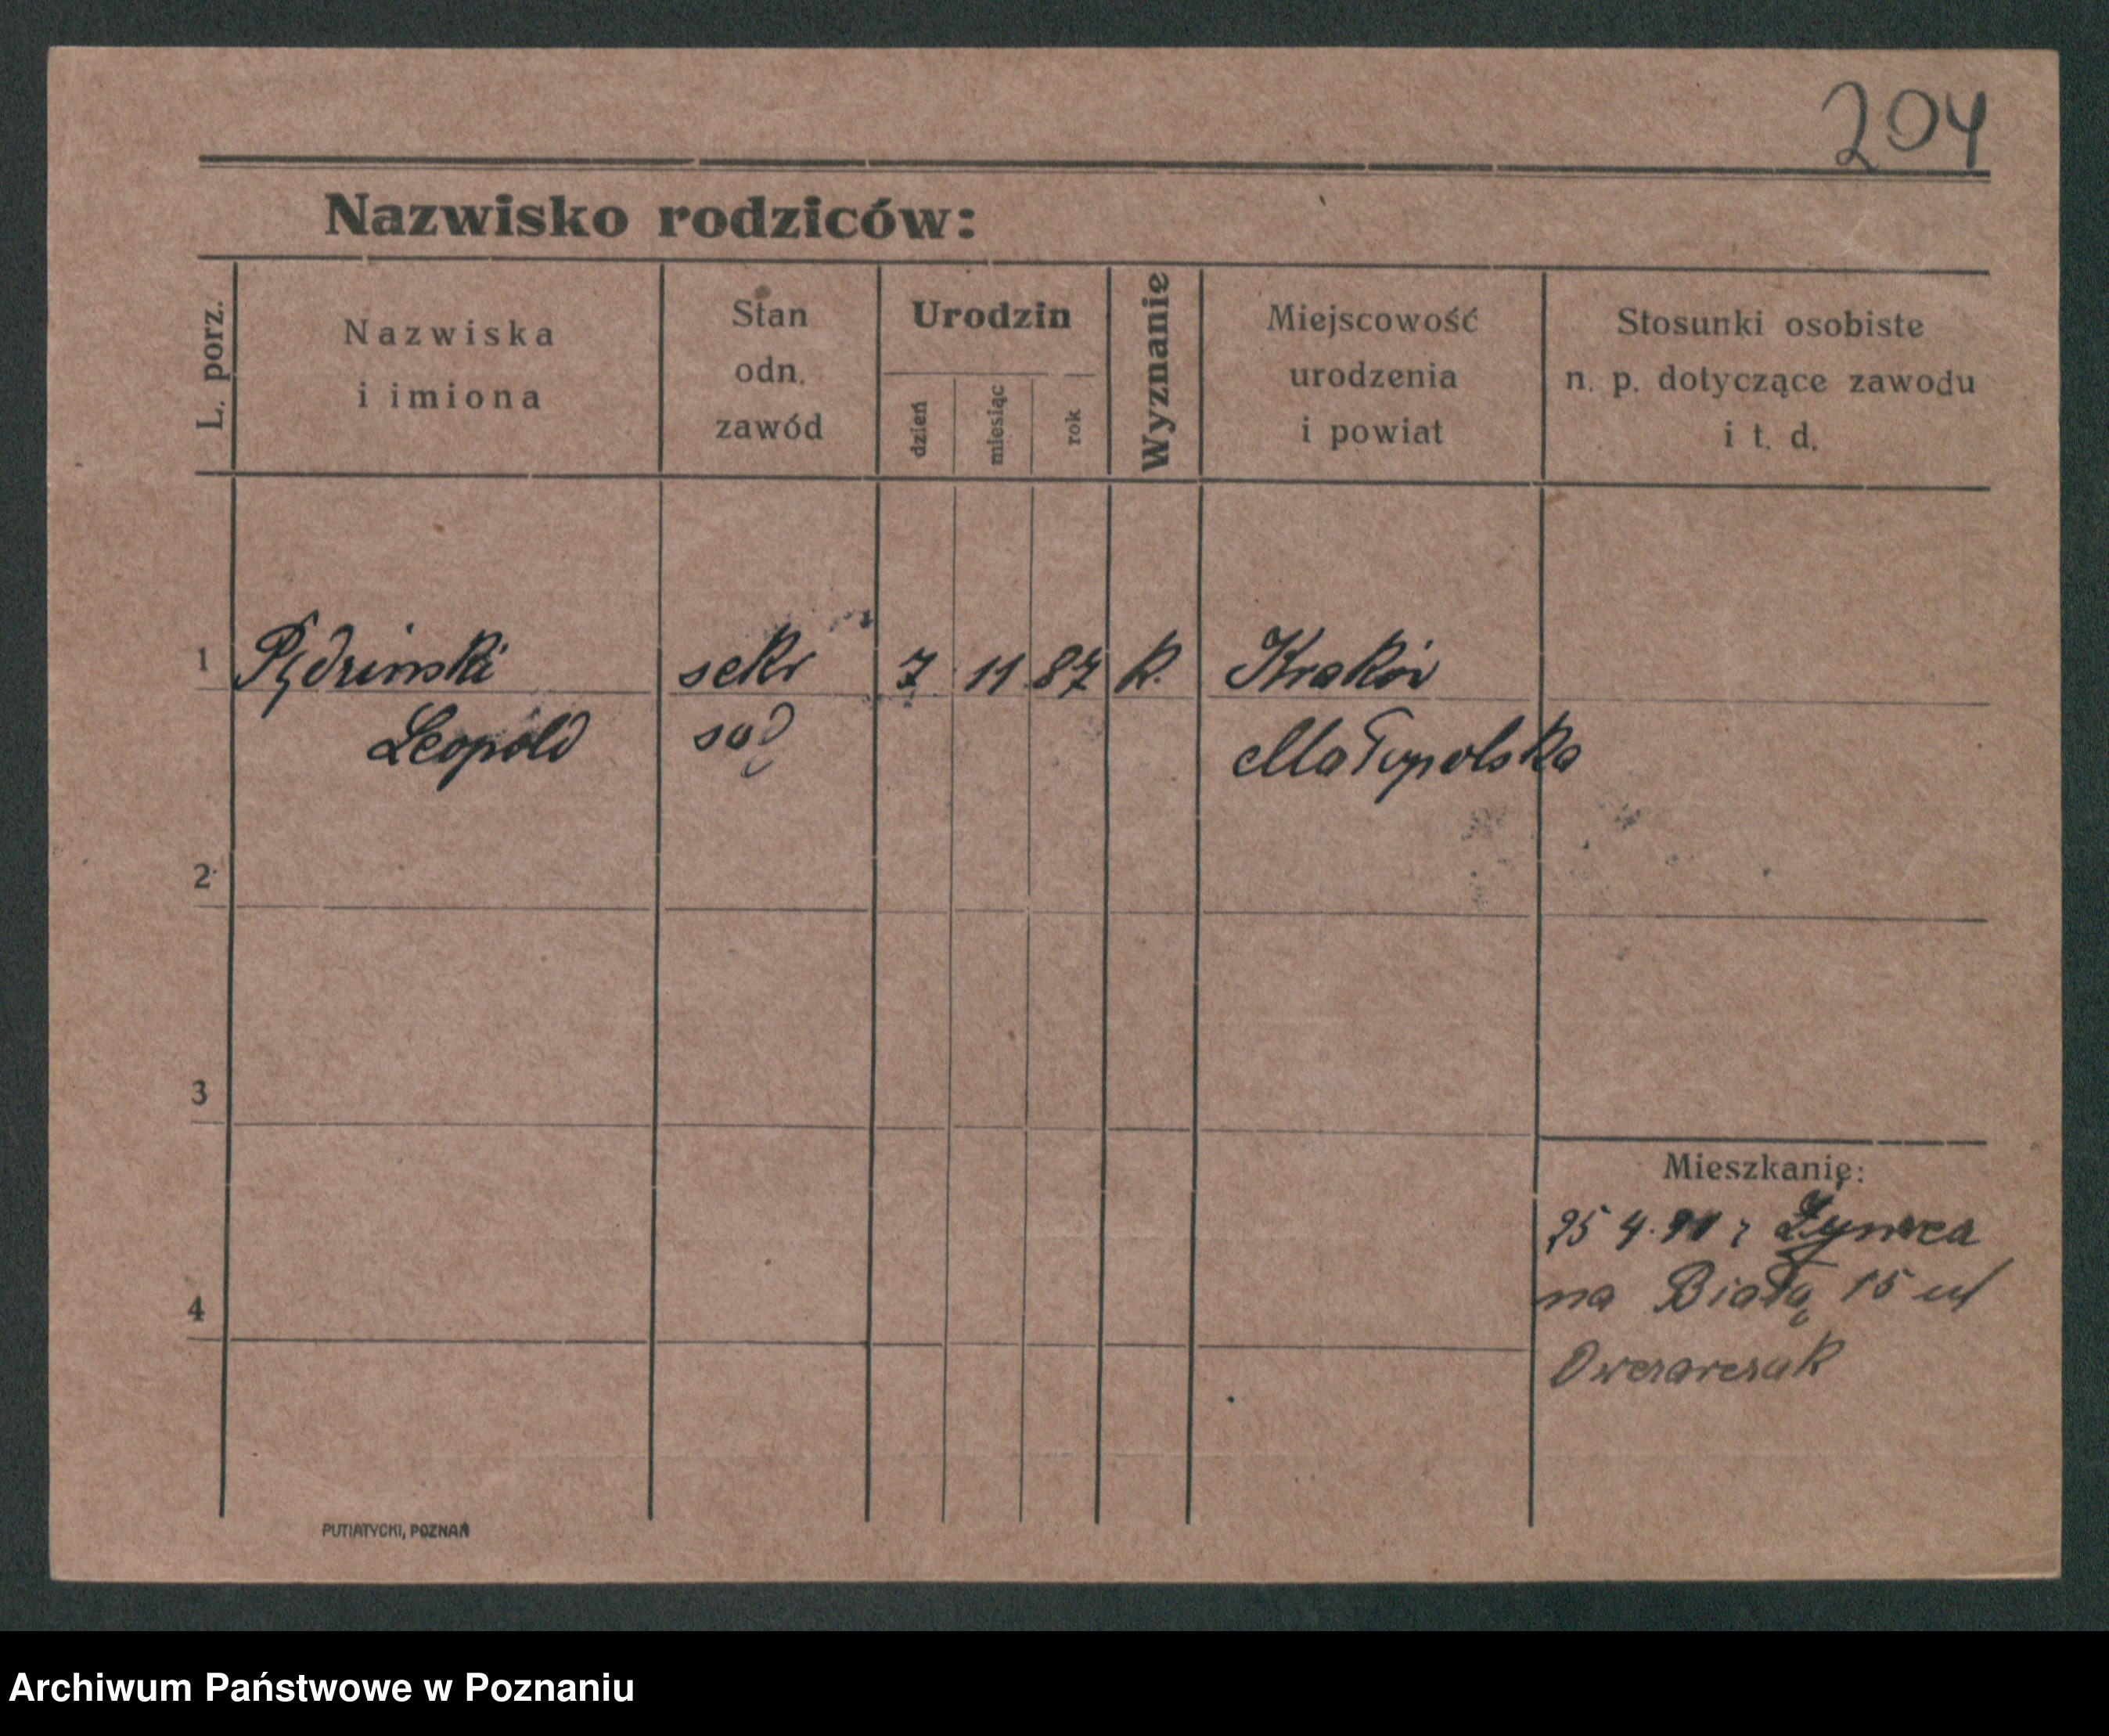 204
Nazwisko rodziców:
L. porz.
Nazwiska
i imiona
Stan
odn.
zawód
Urodzin
dzień
miesiąc
rok
Wyznanie
Miejscowość
urodzenia
i powiat
Stosunki osobiste
n. p. dotyczące zawodu
i t. d.
1 sekr 7 11 87 k. Kraków
Leopold sąd Małopolska
2
3
4
Mieszkanie:
25 4. z Żywca
na Białą 15 u/
Owczarczak
PUTIATYCKI, POZNAŃ
Archiwum Państwowe w Poznaniu